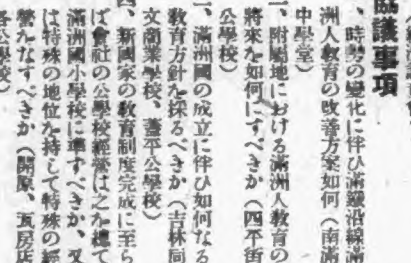 協議事項
一、時勢の變化に伴ひ滿鐵沿線滿
洲人教育の改善方案如何（南滿
中學堂）
一、附屬地における滿洲人教育の
將來を如何にすべきか（四平街
公學校）
一、滿洲國の成立に伴ひ如何なる
教育方針を採るべきか（吉林同
文商業學校、蓋平公學校）
四、新國家の教育制度完成に至ら
ば會社の公學校經營は之を總て
滿洲國小學校に準すべきか、又
は特殊の地位を持して特殊の經
營をなすべきか（開原、瓦房店
各公學校）